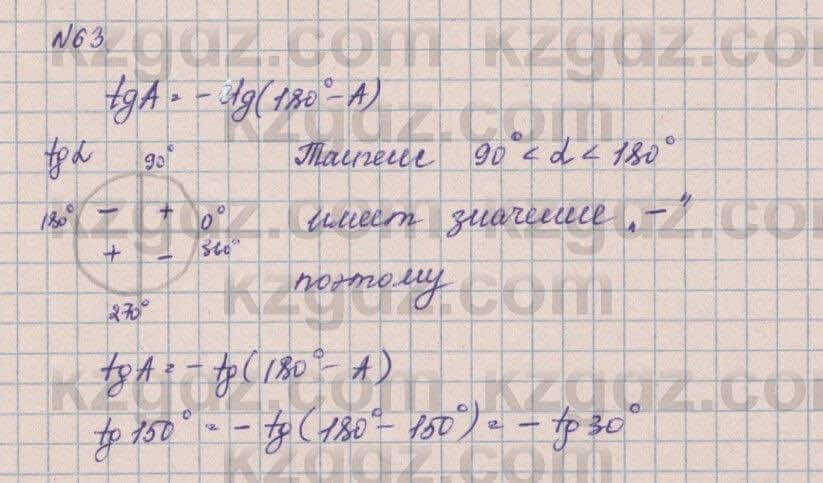 №63
tgA = - tg(180° - A)
tgα 90° Тангенс 90° < α < 180°
180° - + 0° имеет значение „-"
+ - 360°
поэтому
270°
tgA = - tg(180° - A)
tg 150° = - tg(180° - 150°) = - tg 30°
kzgdz.com